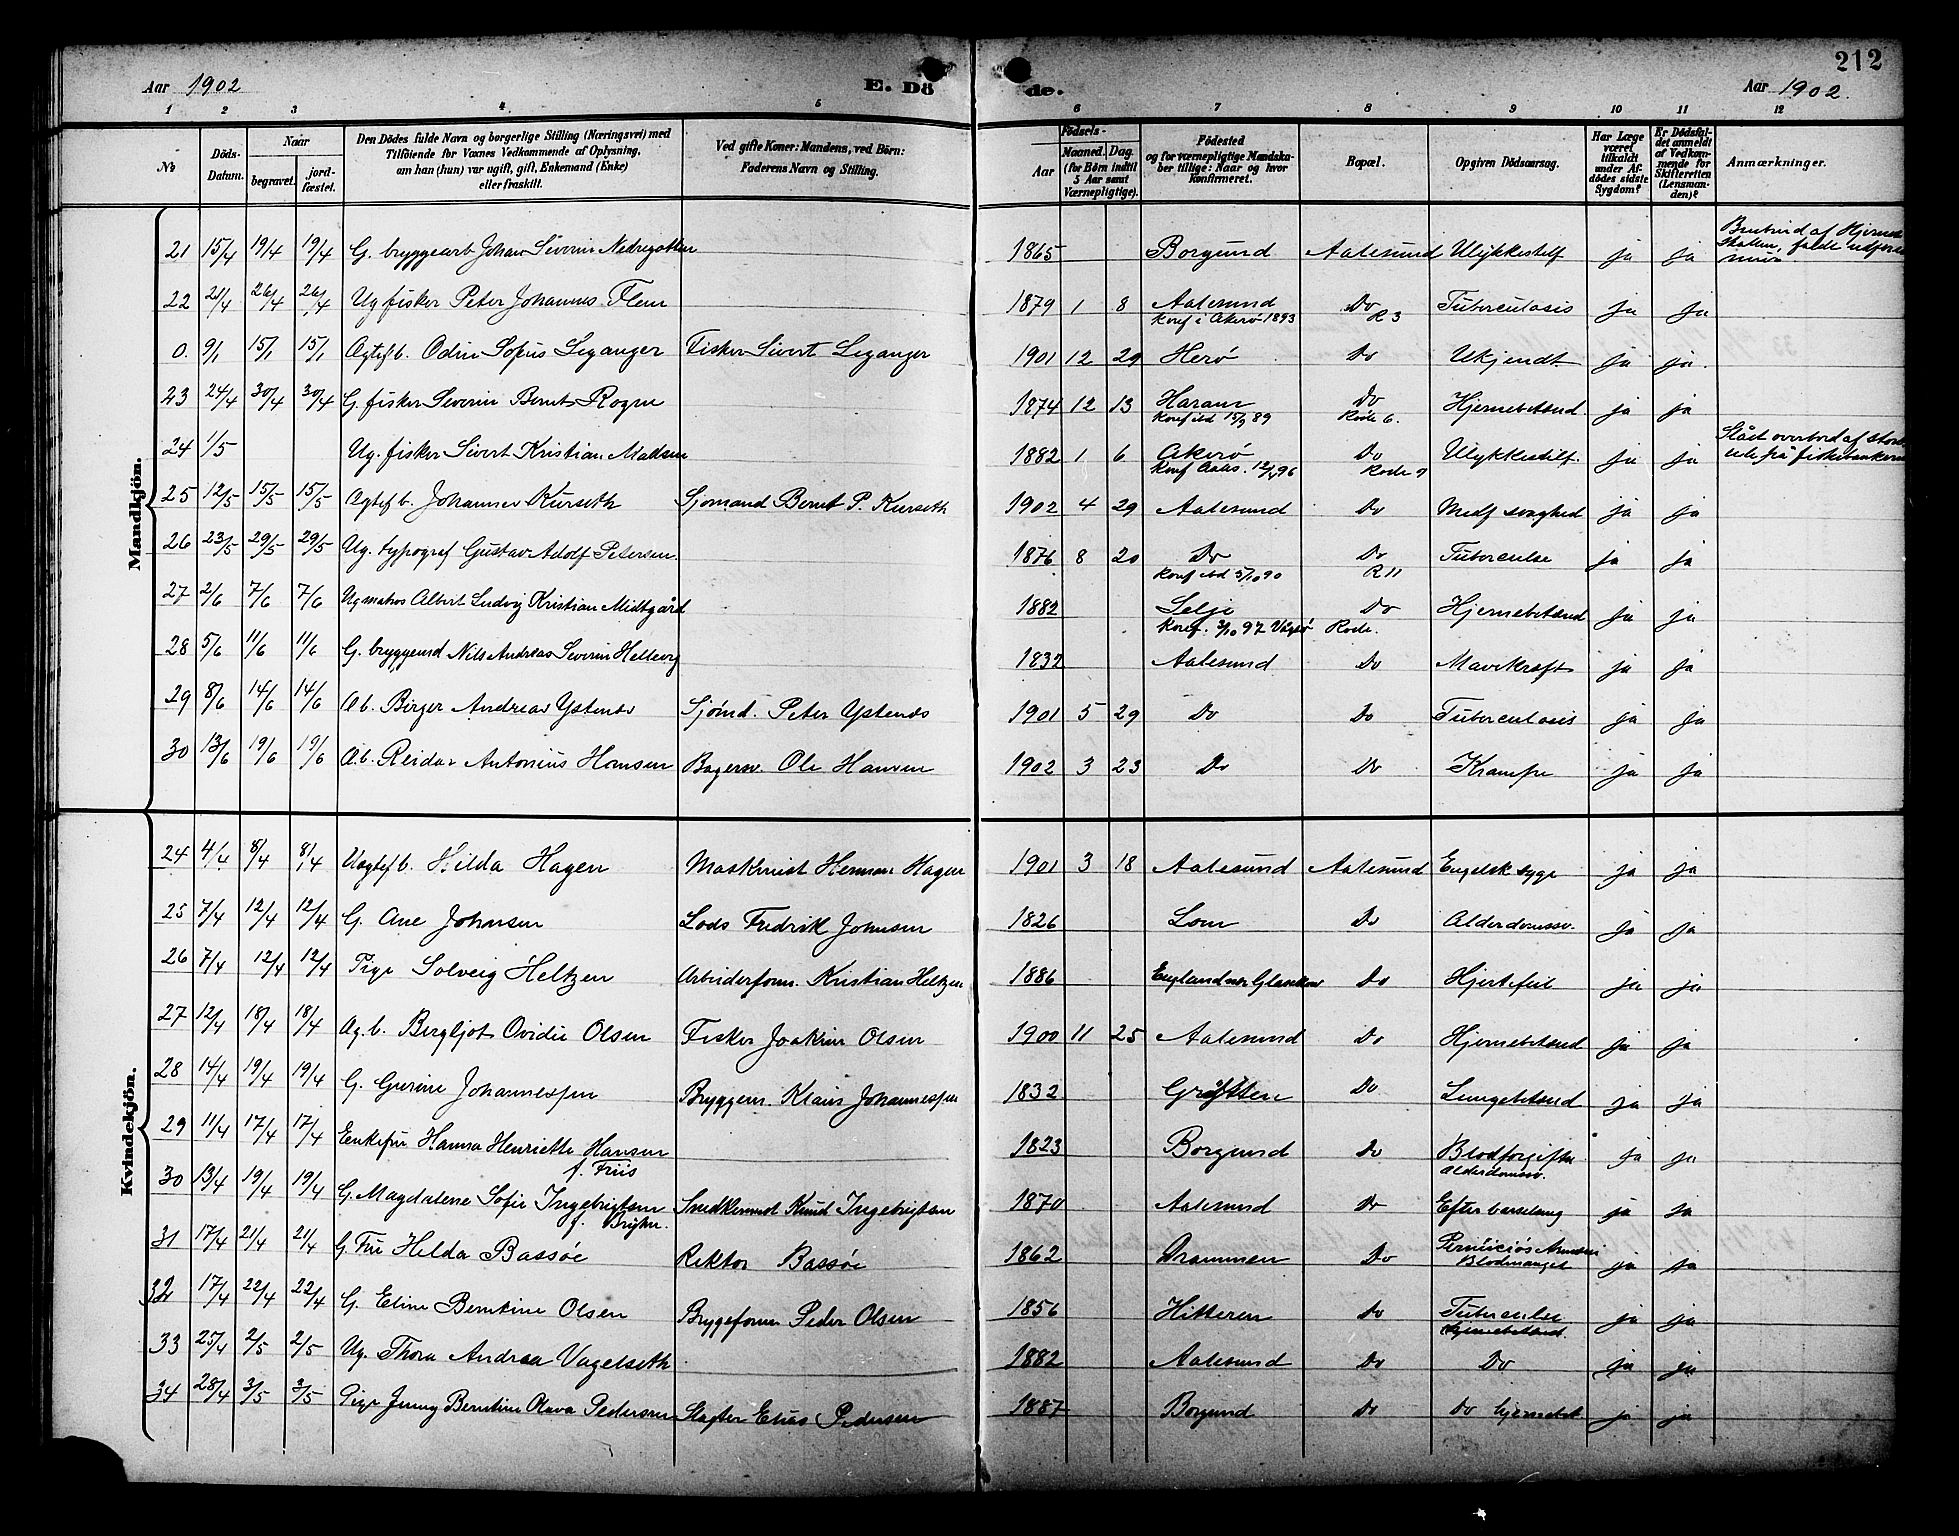 212
Aar 1902 E. Dö de. Aar 1902.
1 2 3 4 5 6 7 8 9 10 11 12
№ Döds-Datum. Naar begravet. jord-fæstet. Den Dödes fulde Navn og borgerlige Stilling (Næringsvei) med Tilföiende for Voxnes Vedkommende af Oplysning, om han (hun) var ugift, gift, Enkemand (Enke) eller fraskilt. Ved gifte Koner: Mandens, ved Börn: Faderens Navn og Stilling. Födsels- Aar Maaned. Dag. (for Börn indtil 5 Aar samt Værnepligtige). Födested og for værnepligtige Mandska-ber tillige: Naar og hvor Konfirmeret. Bopæl. Opgiven Dödsaarsag. Har Læge været tilkaldt under Af-dödes sidste Sygdom? Er Dödsfal-det anmeldt af Vedkom-mende for Skifteretten (Lensman-den)? Anmærkninger.
Mandkjön.
21 15/4 19/4 19/4 G. bryggearb Johan Severin Nedregotten 1865 Borgund Aalesund Ulykkestilf ja ja
22 21/4 26/4 26/4 Ug fisker Peter Johannes Flem 1879 1 8 Aalesund Konf i Akerö 1893 Do R 3 Tuberculosis ja ja
0. 9/1 15/1 15/1 Agtef b. Odin Sofus Leganger Fisker Sivert Leganger 1901 12 29 Herö Do Ukjendt. ja ja.
23 24/4 30/4 30/4 G. fisker Severin Bernt Rogne 1874 12 13 Haram Konf ibd 15/9 89 Do Rode 6. Hjernebetænd. ja ja
24 1/5 Ug. fisker Sivert Kristian Madsen 1882 1 6 Akerö Konf Aales. Do Rode 7 Ulykkestilf. ja ja Slået overbord af
ude på fiskebankerne
25 12/5 15/5 15/5 Agtef b. Johannes Kurseth Sjömand Bernt P. Kurseth 1902 4 29 Aalesund Do Medf svaghed ja ja
26 23/5 29/5 29/5 Ug. typograf Gustav Adolf Petersen. 1876 8 20 Do Konf ibd 5/10 90 Do R 11 Tuberculse ja ja
27 2/6 7/6 7/6 Ug matros Albert Ludvig Kristian Midtgård 1882 Selje Konf. 3/10 97 Vågsö Do Rode. Hjernebetænd ja ja
28 5/6 11/6 11/6 G. bryggemd Nils Andreas Severin Hellevig 1832 Aalesund Do Mavekræft ja ja
29 8/6 14/6 14/6 Ab. Birger Andreas Ystenes Sjömd. Peter Ystenes 1901 5 29 Do Do Tuberculosis ja ja
30 13/6 19/6 19/6 A.b. Reidar Antonius Hansen Bagersv. Ole Hansen 1902 3 23 Do Do Krampe ja ja
Kvindekjön.
24 4/4 8/4 8/4 Uagtef b. Hilda Hagen Maskinist Herman Hagen 1901 3 18 Aalesund Aalesund Engelsk syge ja ja
25 7/4 12/4 12/4 G. Ane Johnsen Lods Fredrik Johnsen 1826 Lom Do Alderdomssv. ja ja
26 7/4 12/4 12/4 Pige Solveig Heltzen Arbeiderform. Kristian Heltzen 1886 England Do Hjertefeil ja ja
27 12/4 18/4 18/4 Ag. b. Bergljot Ovidie Olsen Fisker Joakim Olsen 1900 11 25 Aalesund Do Hjernebetænd ja ja
28 14/4 19/4 19/4 G. Gurine Johannessen Bryggem. Klaus Johannessen 1832 Grytten Do Lungebetænd ja ja
29 11/4 17/4 17/4 Enkefru Hanna Henriette Hansen f. Friis 1823 Borgund Do Blodforgiftn alderdomssv. ja ja
30 13/4 19/4 19/4 G. Magdalene Sofie Ingebrigtsen Snedkermd Knud Ingebrigtsen 1870 Aalesund Do Efter barselseng ja ja
31 17/4 21/4 21/4 G. Fru Hilda Bassöe Rektor Bassöe 1862 Drammen Do Perniciös Anæmi Blodmangel ja ja
32 17/4 22/4 22/4 G. Eline Berntine Olsen Bryggeform Peder Olsen 1856 Hitteren Do Tuberculse hjernebetænd. ja ja
33 25/4 2/5 2/5 Ug. Thora Andrea Vagelseth 1882 Aalesund Do Do ja ja
34 28/4 3/5 3/5 Pige Jenny Berntine Olava Pedersen Slagter Elias Pedersen 1887 Borgund Do Do hjernebet ja ja